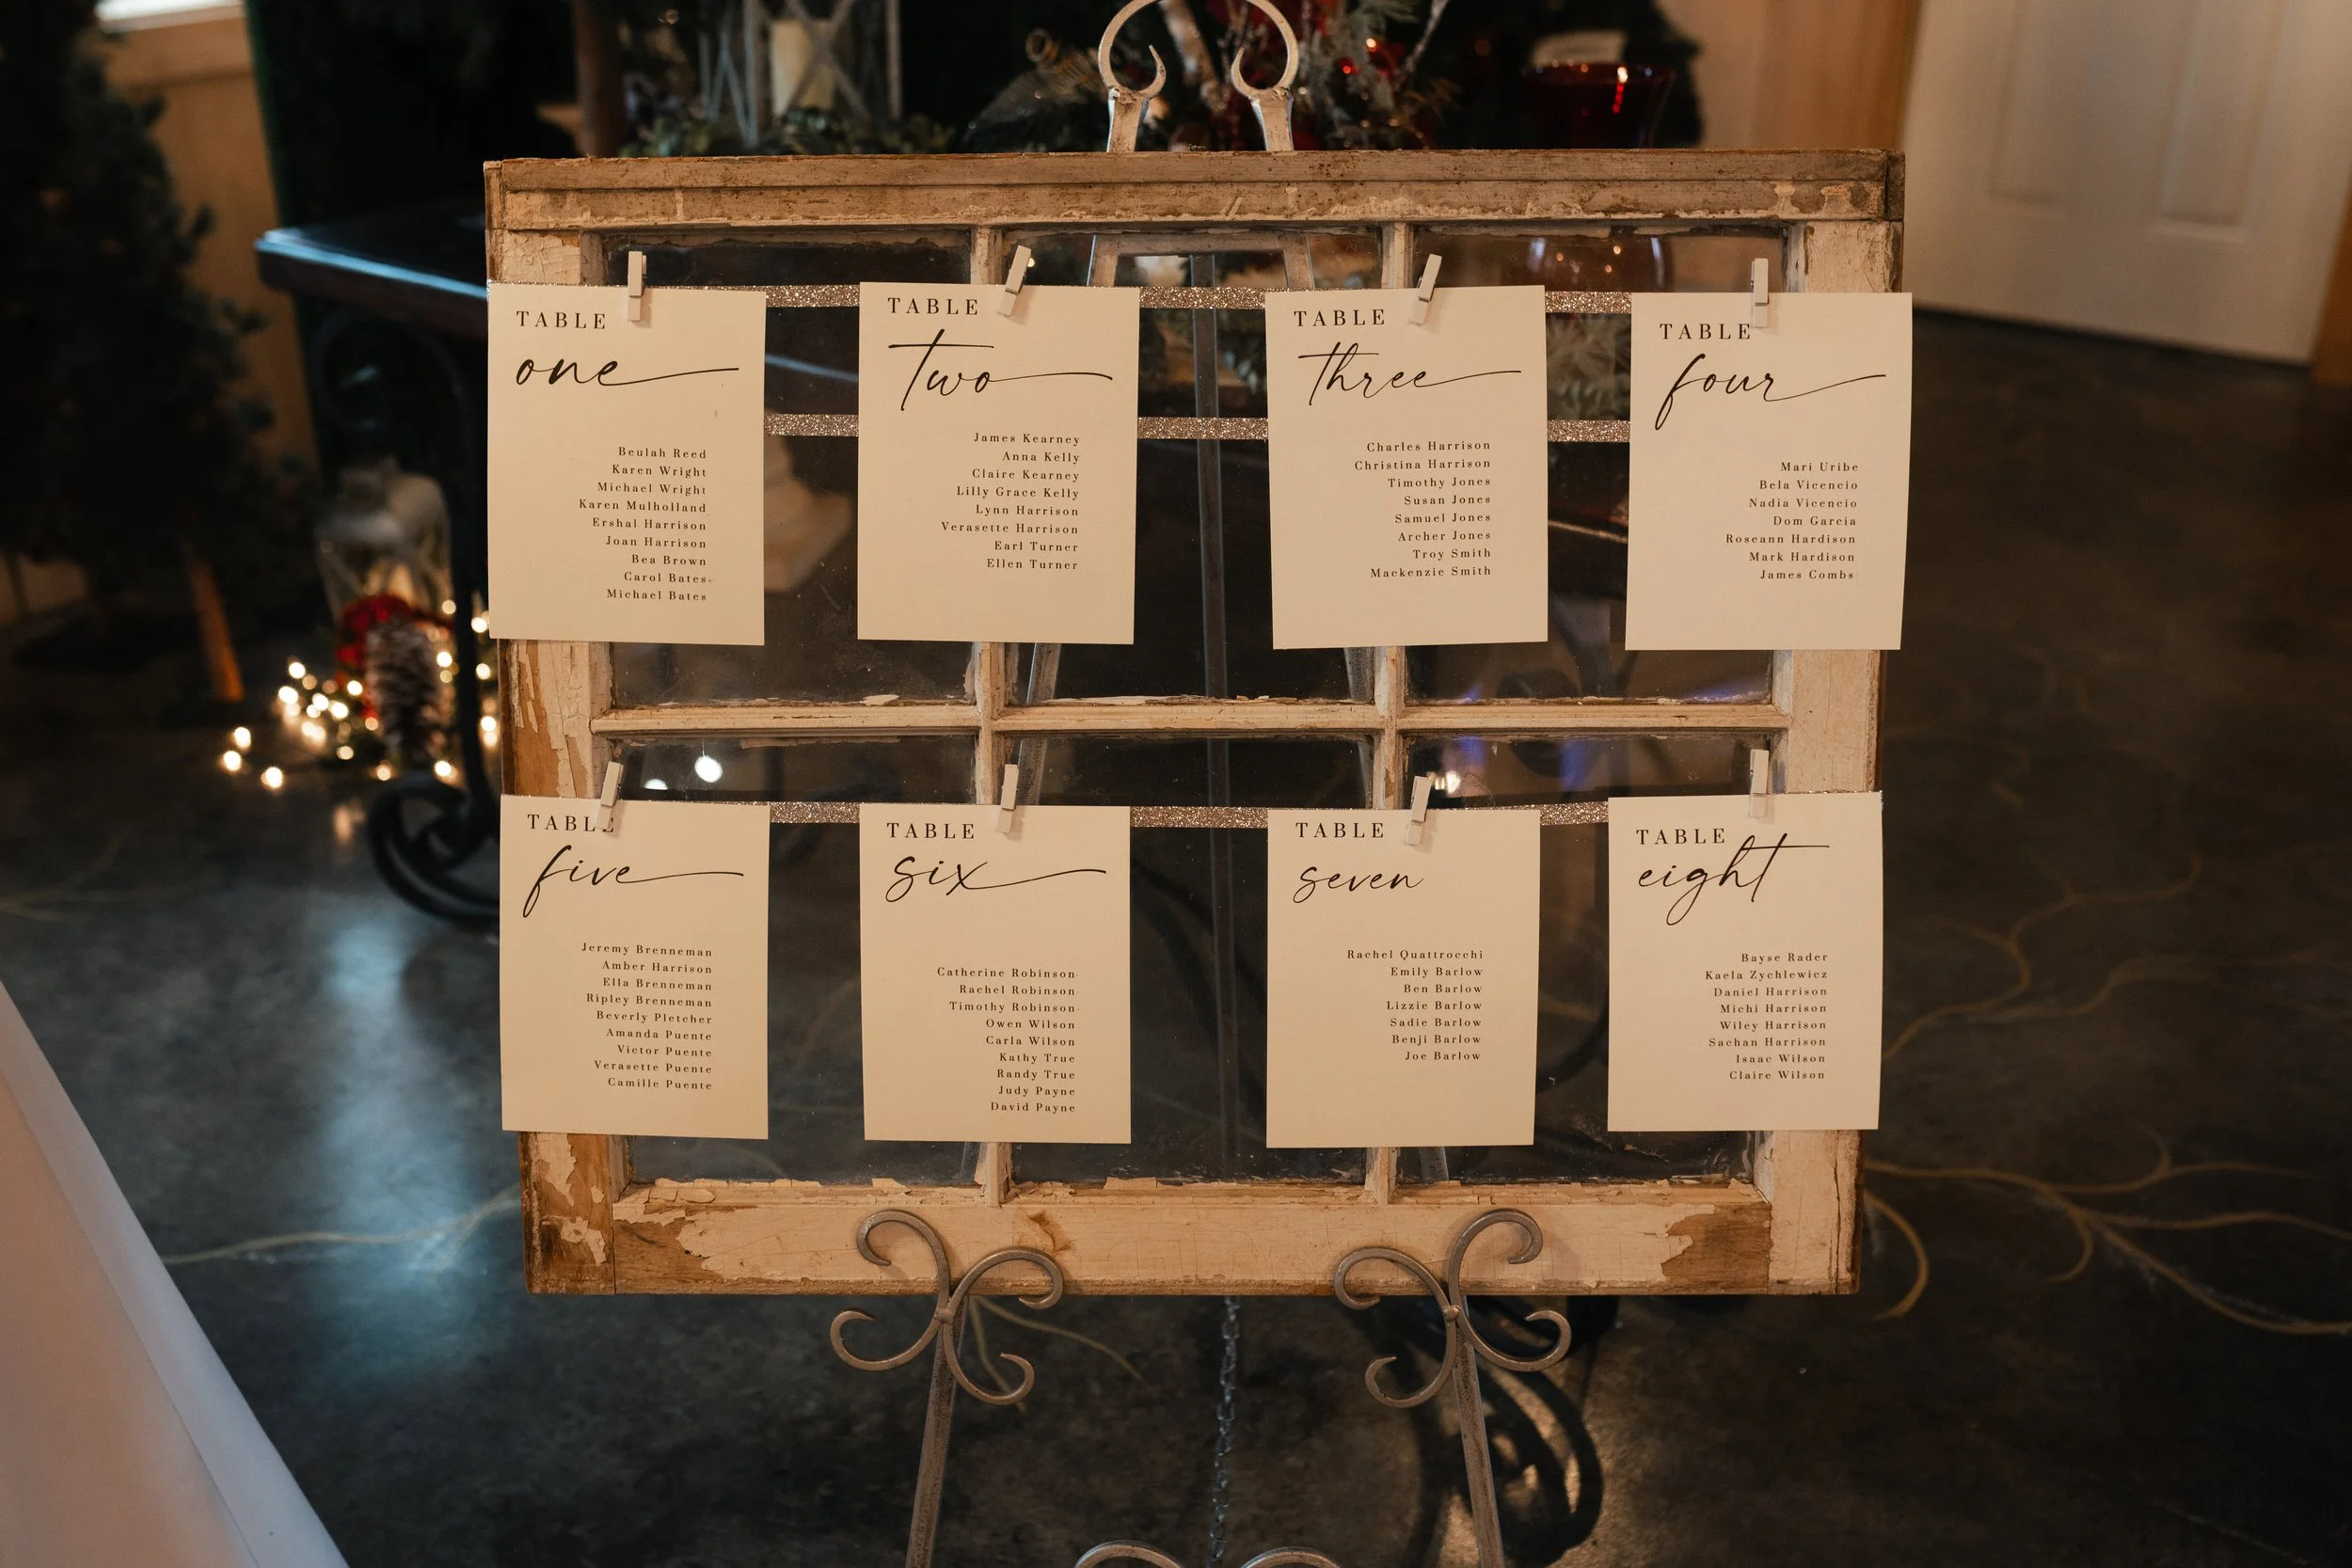 TABLE
one
Beulah Reed
Karen Wright
Michael Wright
Karen Mulholland
Ershal Harrison
Joan Harrison
Bea Brown
Carol Bates
Michael Bates
TABLE
two
James Kearney
Anna Kelly
Claire Kearney
Lilly Grace Kelly
Lynn Harrison
Verasette Harrison
Earl Turner
Ellen Turner
TABLE
three
Charles Harrison
Christina Harrison
Timothy Jones
Susan Jones
Samuel Jones
Archer Jones
Troy Smith
Mackenzie Smith
TABLE
four
Mari Uribe
Bela Vicencio
Nadia Vicencio
Dom Garcia
Roseann Hardison
Mark Hardison
James Combs
TABLE
five
Jeremy Brenneman
Amber Harrison
Ella Brenneman
Ripley Brenneman
Beverly Pletcher
Amanda Puente
Victor Puente
Verasette Puente
Camille Puente
TABLE
six
Catherine Robinson
Rachel Robinson
Timothy Robinson
Owen Wilson
Carla Wilson
Kathy True
Randy True
Judy Payne
David Payne
TABLE
seven
Rachel Quattrocchi
Emily Barlow
Ben Barlow
Lizzie Barlow
Sadie Barlow
Benji Barlow
Joe Barlow
TABLE
eight
Bayse Rader
Kaela Zychlewicz
Daniel Harrison
Michi Harrison
Wiley Harrison
Sachan Harrison
Isaac Wilson
Claire Wilson